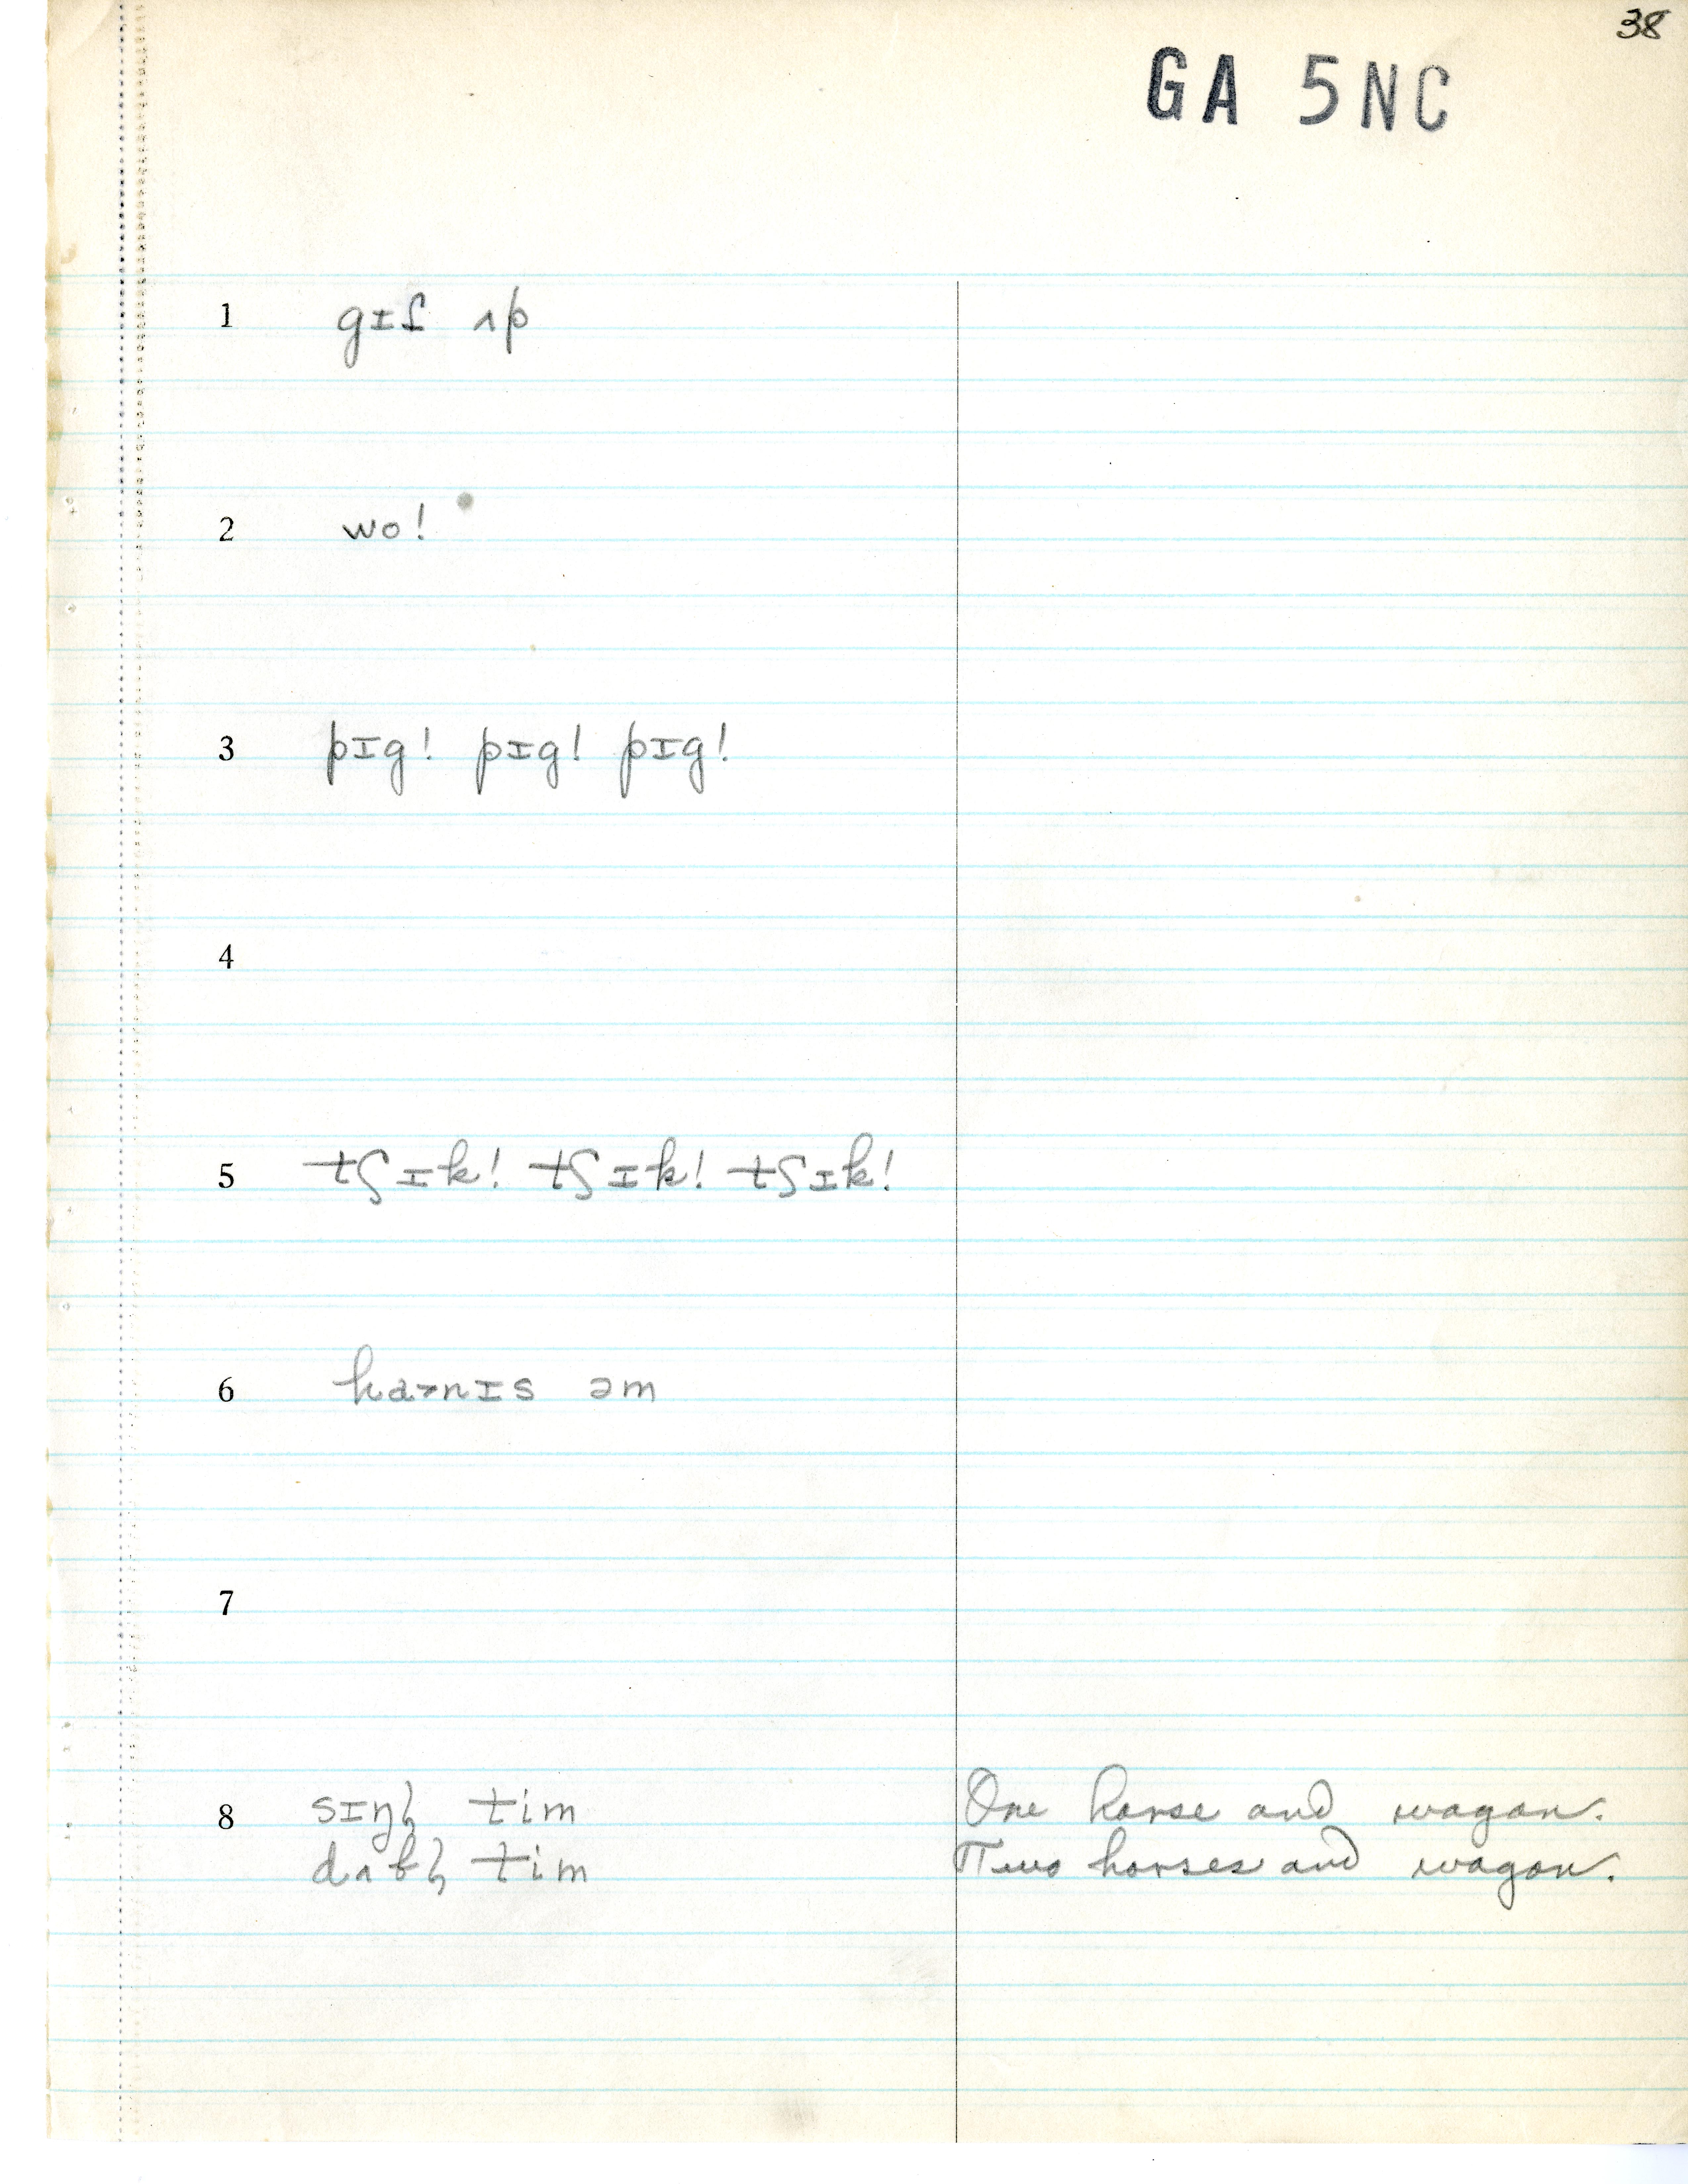 38
GA 5NC
1 gɪɾ ʌp
2 wo!
3 pɪg! pɪg! pɪg!
4
5 tʃɪk! tʃɪk! tʃɪk!
6 əm
7
8 tim One horse and wagon.
tim Two horses and wagon.